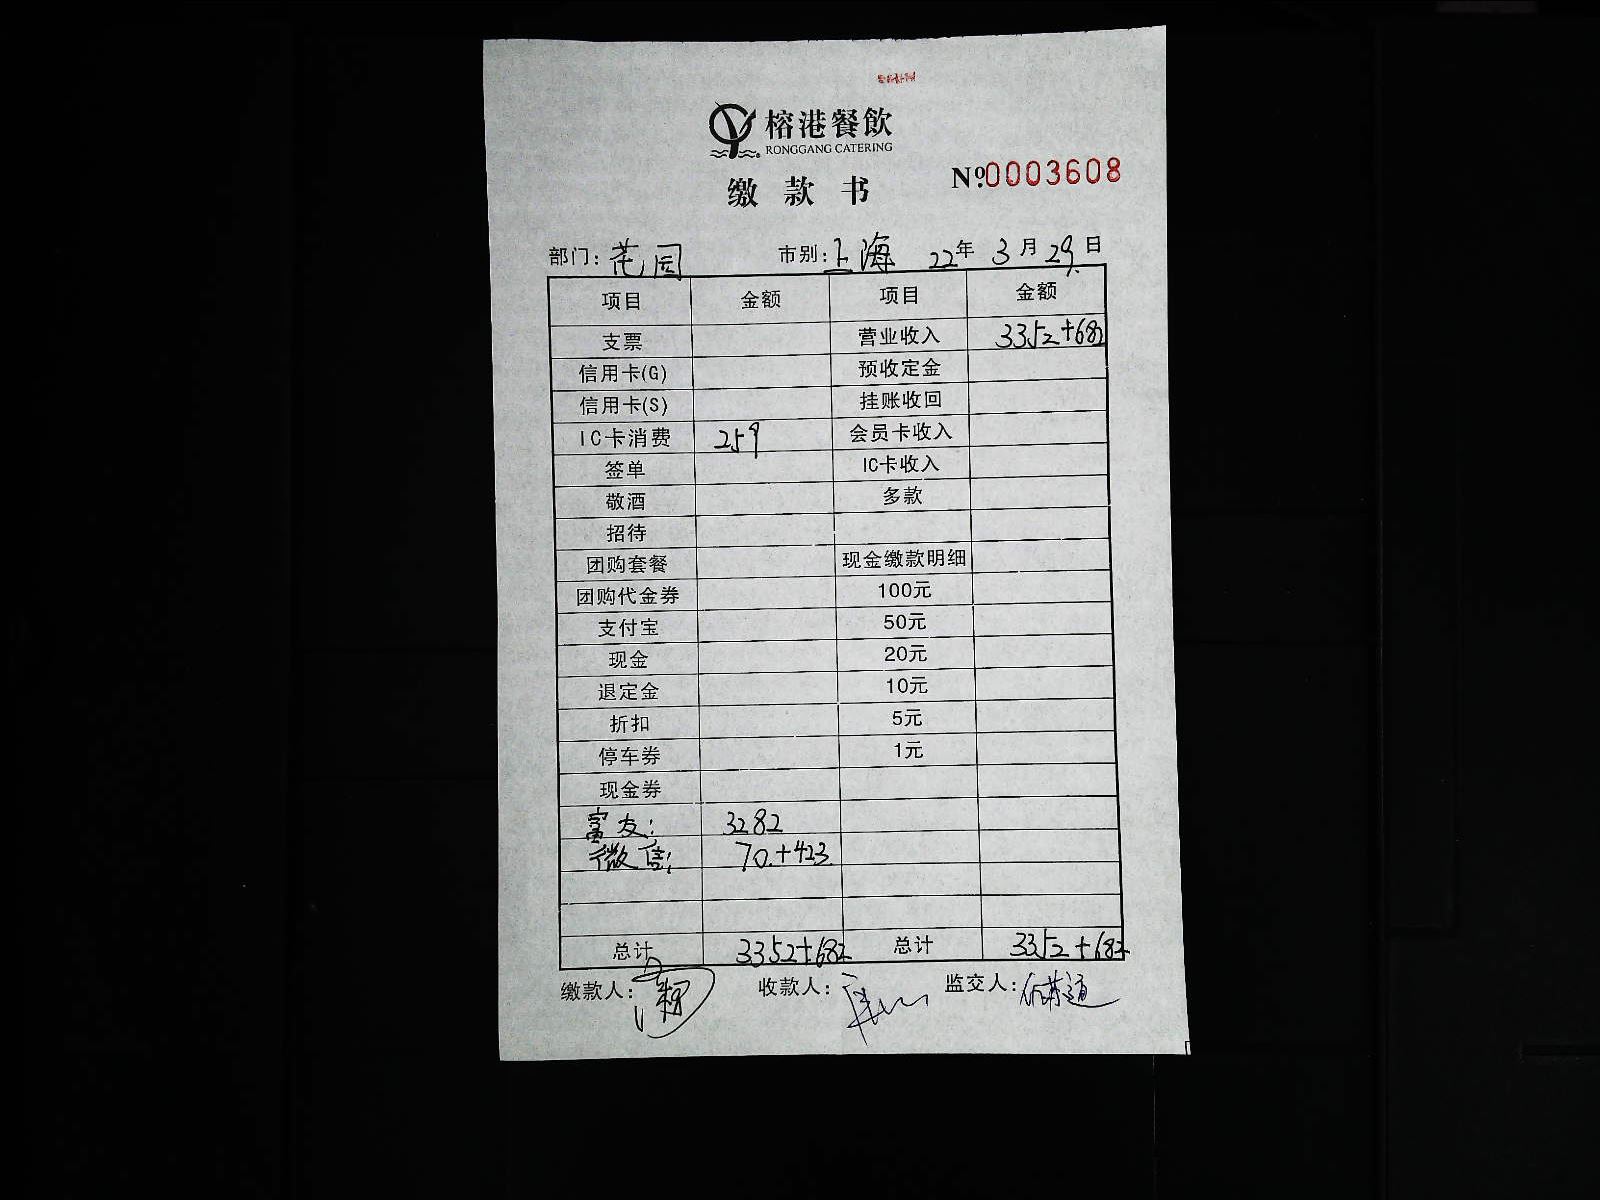 榕港餐飲
RONGGANG CATERING
缴款书 №0003608
部门：花园 市别：上海 22年 3月 29日
项目 金额 项目 金额
支票 营业收入 3352+682
信用卡(G) 预收定金
信用卡(S) 挂账收回
IC卡消费 259 会员卡收入
签单 IC卡收入
敬酒 多款
招待
团购套餐 现金缴款明细
团购代金券 100元
支付宝 50元
现金 20元
退定金 10元
折扣 5元
停车券 1元
现金券
富友： 3282
微信： 70.+423
总计 3352+682 总计 3352+682
缴款人： 收款人： 监交人：